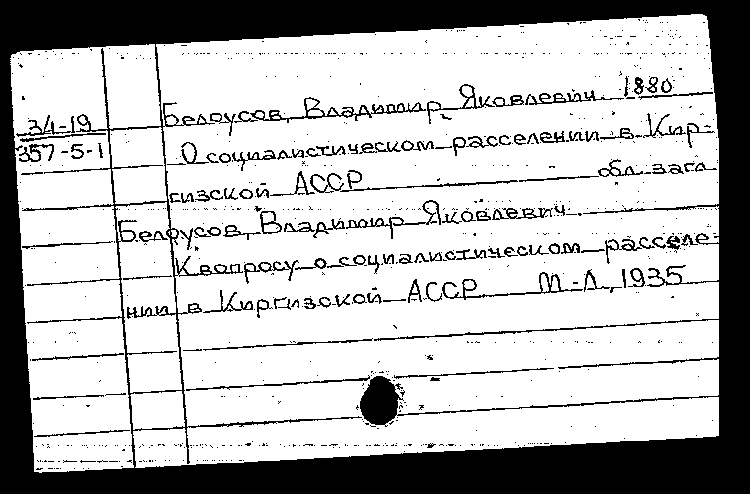 34-19
357-5-1
Белоусов, Владимир Яковлевич. 1880
О социалистическом расселении в Кир-
гизской АССР обл. загл.
Белоусов, Владимир Яковлевич.
К вопросу о социалистическом расселе-
нии в Киргизской АССР М-Л., 1935